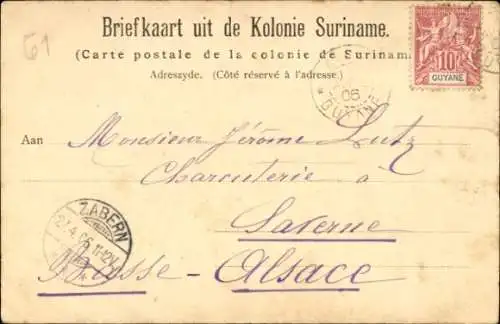 61
Briefkaart uit de Kolonie Suriname.
(Carte postale de la colonie de Surinam
Adreszyde. (Côté réservé à l'adresse.)
10
GUYANE
06
GUYANE
Aan
Monsieur Jérôme Lutz
Charcuterie à
Saverne
Basse-Alsace
ZABERN